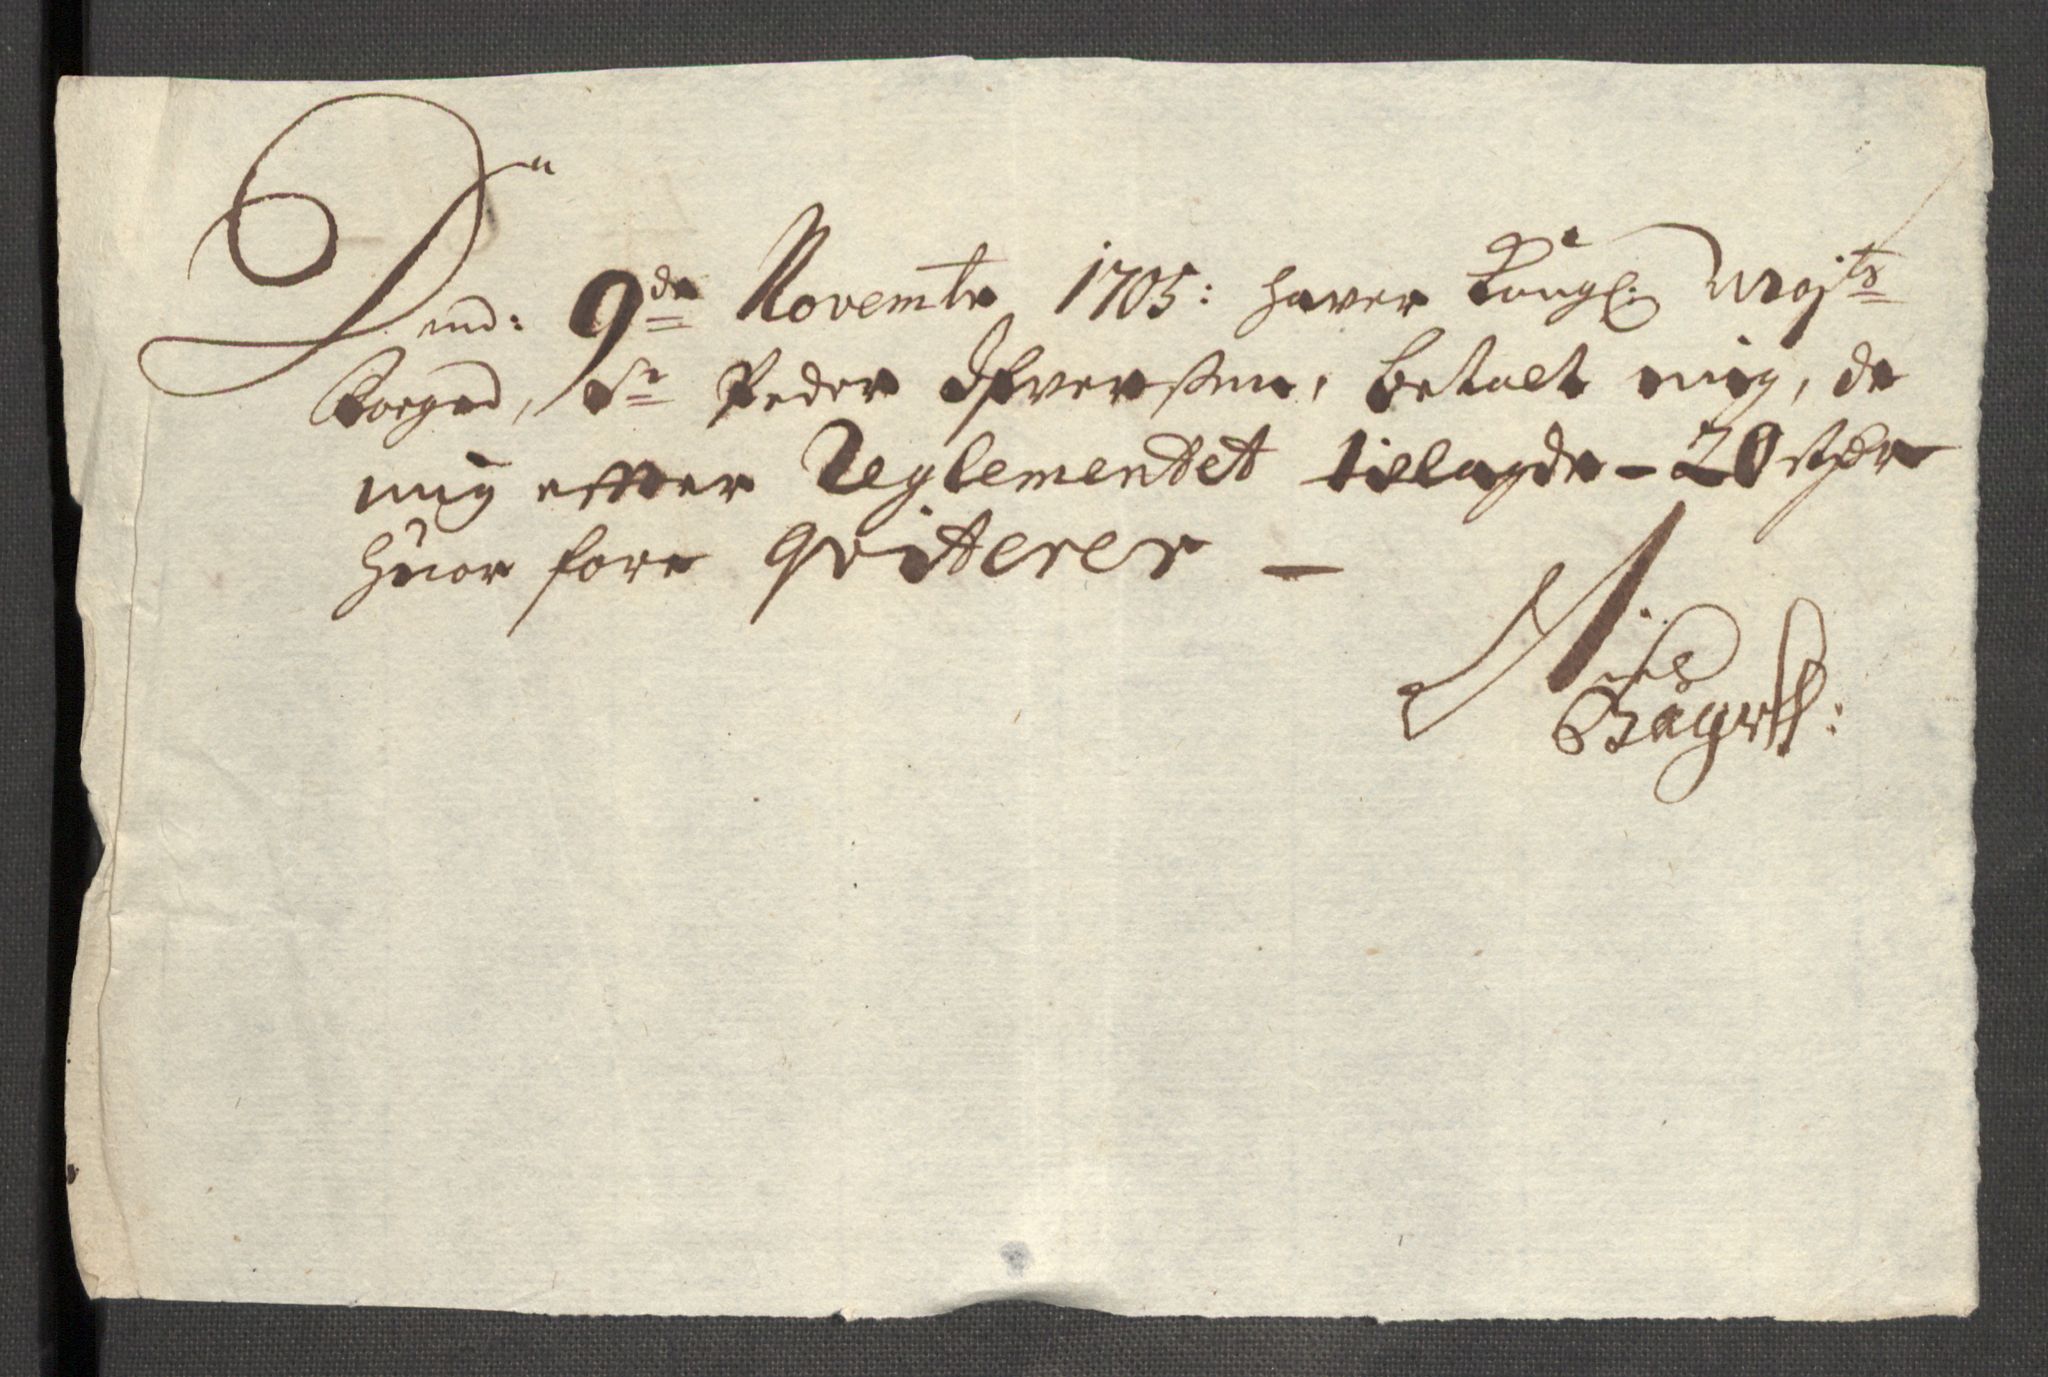 Dend: 9de Novembr 1705: haver Kongl: Majts
Foged, Sr Peder Ifversen, betalt mig, de
mig efter Reglementet tillagde - 20 rdr
huor fore qvitterer -
Niels